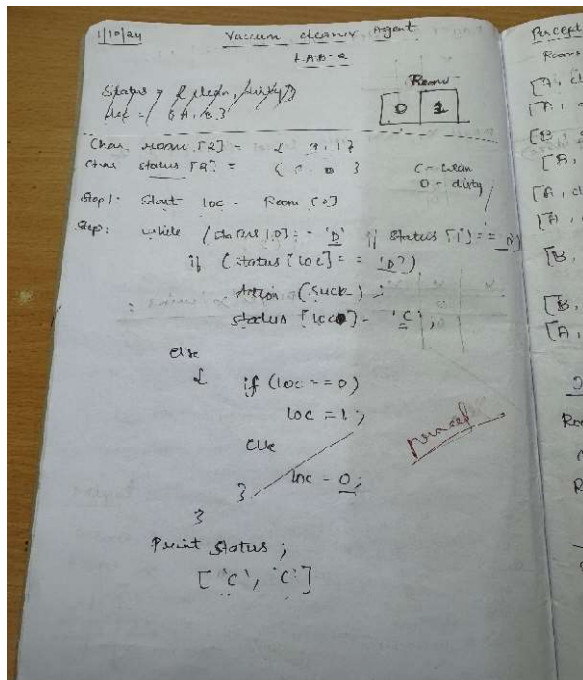 1/10/24 Vacuum cleaner Agent
LAB-2
Rooms
Status = { clean, dirty }
Loc = { A, B }
0 1
Char room [2] = { 0, 1 }
Char status [2] = { C, D }
C - clean
D - dirty
Step 1: Start loc - Room [0]
Step: while (status [0] = 'D' || status [1] == 'D')
if (status [loc] == 'D')
Action (Suck)
status [loc] = 'C',
else
{ if (loc == 0)
loc = 1;
else
loc = 0;
}
}
Print status;
['C', 'C']
Percept
Rooms
[A, cl
[A,
[B,
[B,
[A, cl
[A,
[B,
[B,
[A,
Roo
R